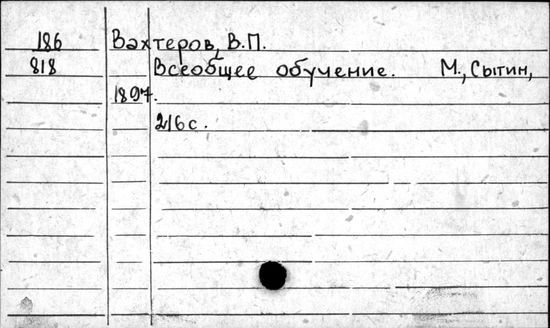 186 Вахтеров, В.П.
818 Всеобщее обучение. М., Сытин,
1897.
216 с.